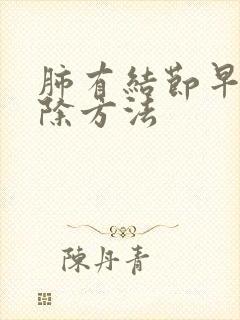 肺有結節早
除方法
陳丹青